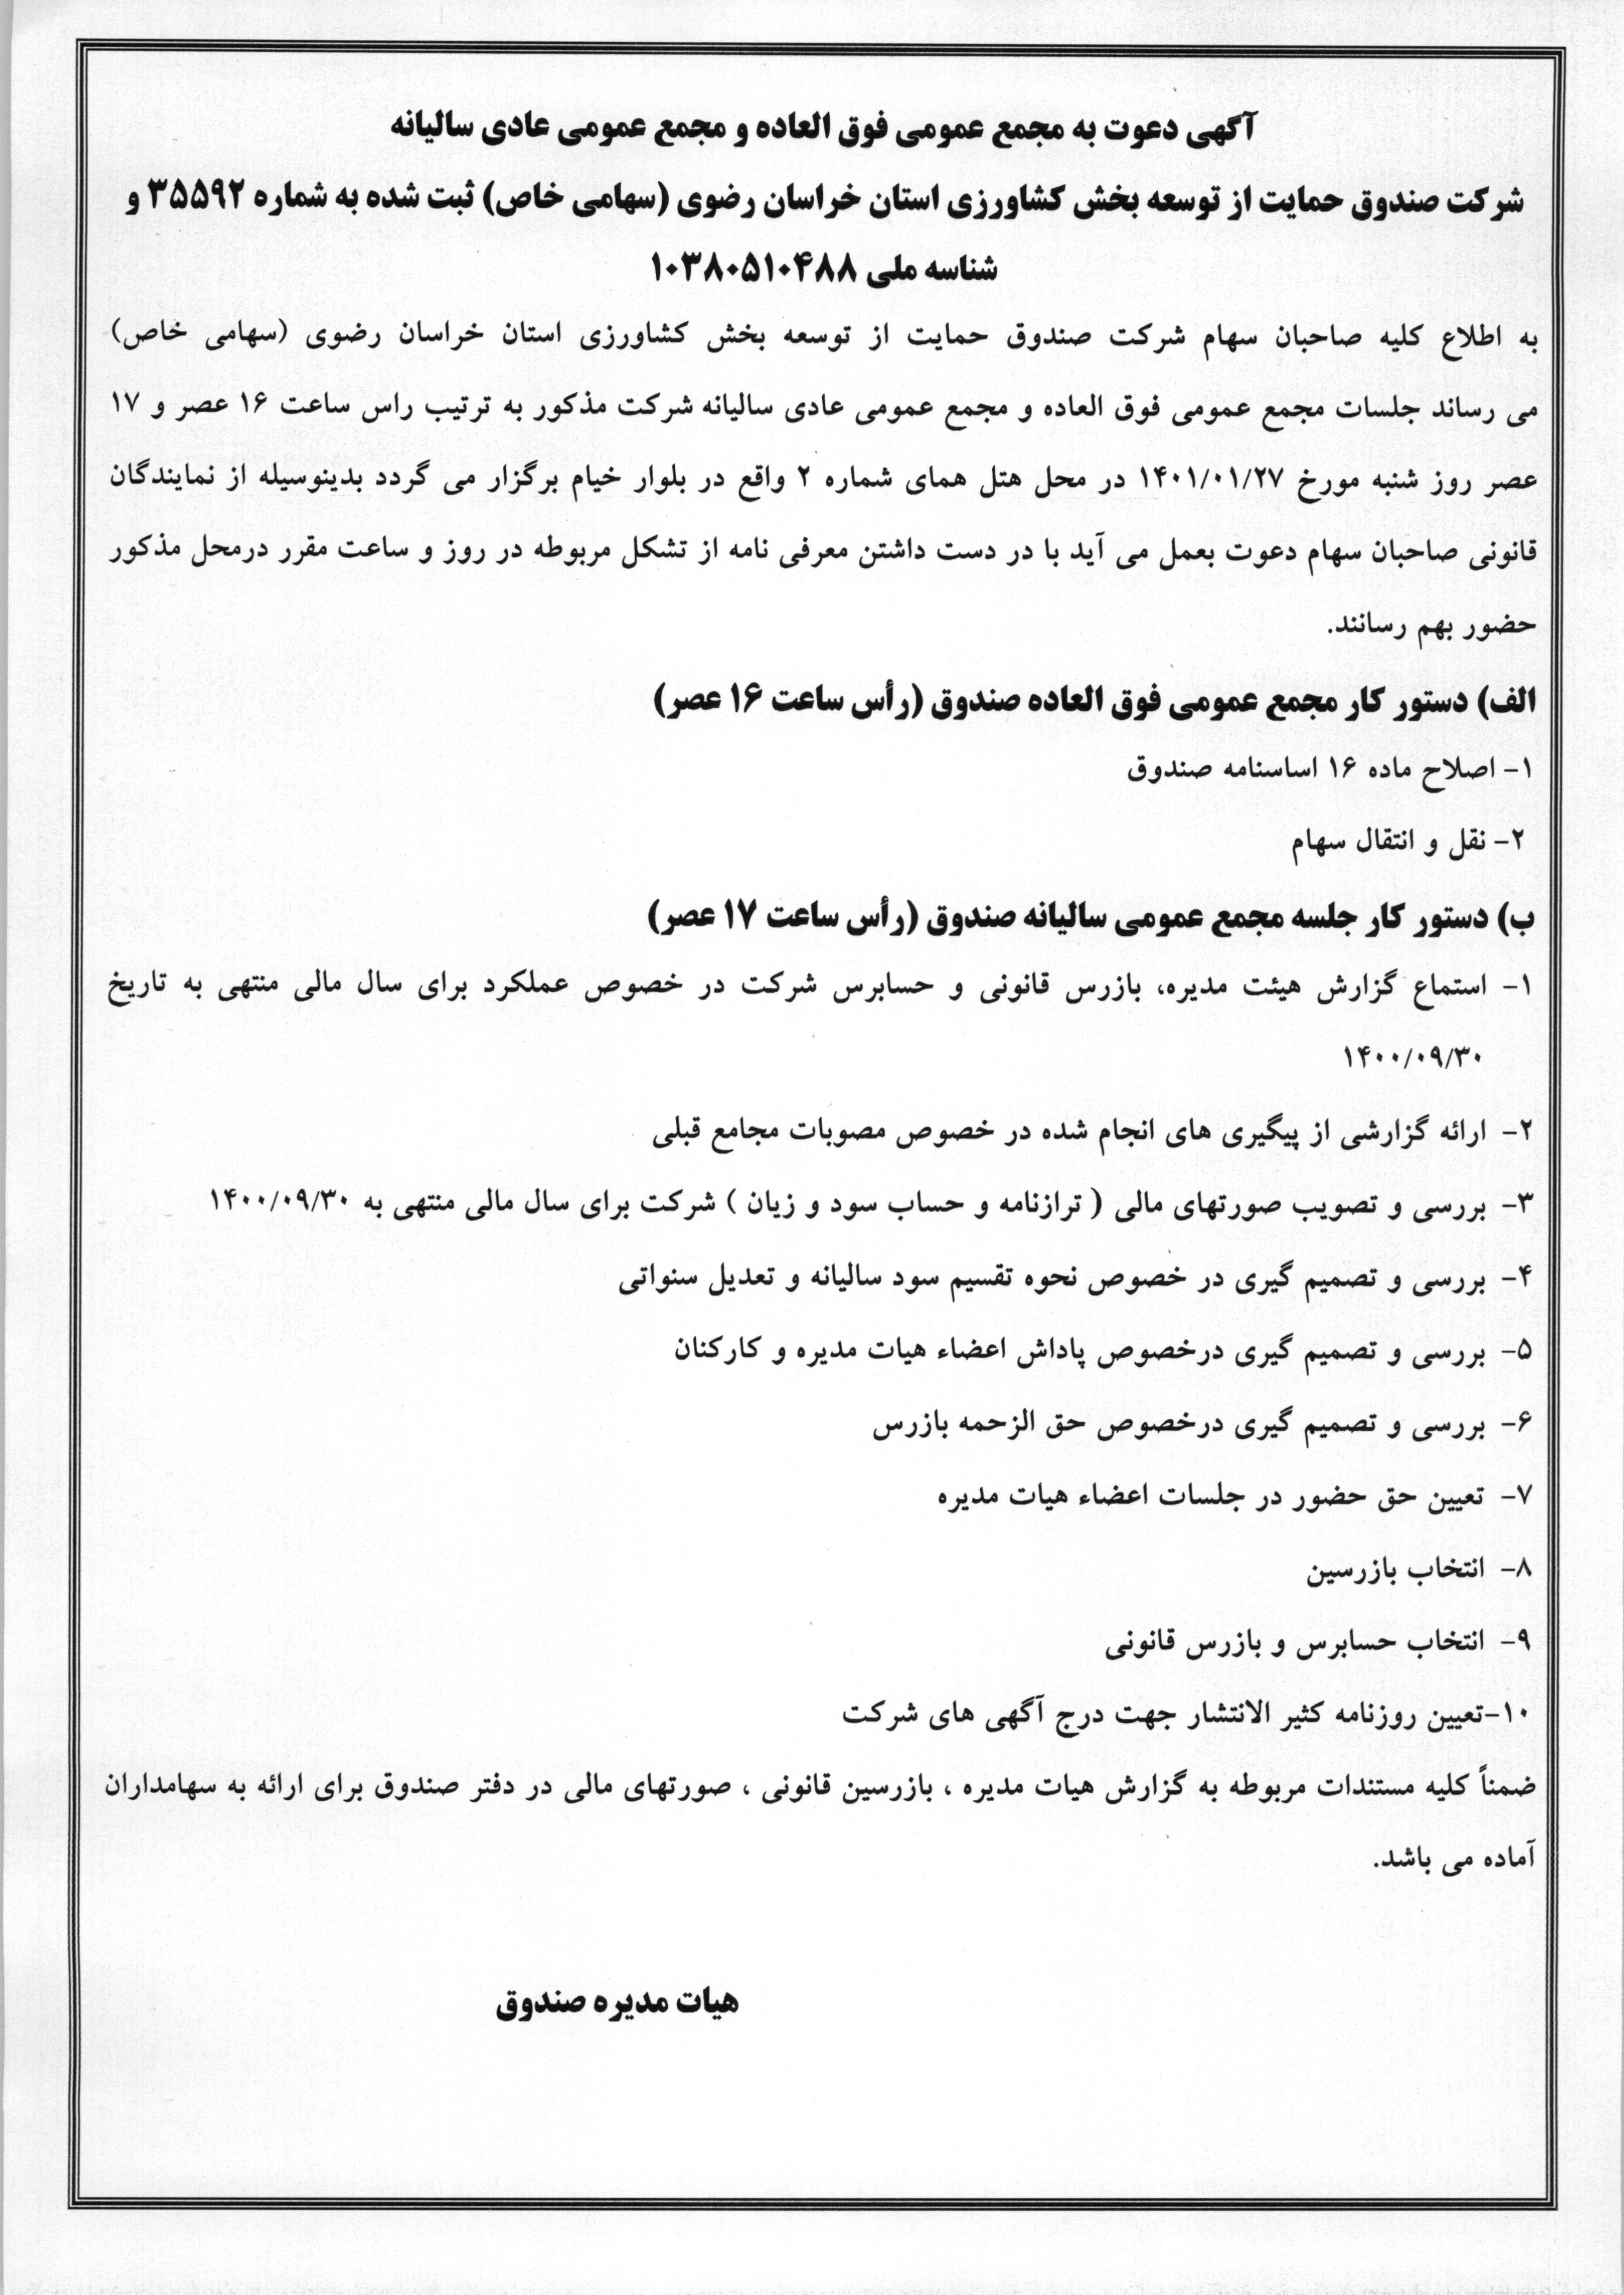 آگهی دعوت به مجمع عمومی فوق العاده و مجمع عمومی عادی سالیانه
شرکت صندوق حمایت از توسعه بخش کشاورزی استان خراسان رضوی (سهامی خاص) ثبت شده به شماره ۳۵۵۹۲ و
شناسه ملی ۱۰۳۸۰۵۱۰۴۸۸
به اطلاع کلیه صاحبان سهام شرکت صندوق حمایت از توسعه بخش کشاورزی استان خراسان رضوی (سهامی خاص)
می رساند جلسات مجمع عمومی فوق العاده و مجمع عمومی عادی سالیانه شرکت مذکور به ترتیب راس ساعت ۱۶ عصر و ۱۷
عصر روز شنبه مورخ ۱۴۰۱/۰۱/۲۷ در محل هتل همای شماره ۲ واقع در بلوار خیام برگزار می گردد بدینوسیله از نمایندگان
قانونی صاحبان سهام دعوت بعمل می آید با در دست داشتن معرفی نامه از تشکل مربوطه در روز و ساعت مقرر درمحل مذکور
حضور بهم رسانند.
الف) دستور کار مجمع عمومی فوق العاده صندوق (رأس ساعت ۱۶ عصر)
۱- اصلاح ماده ۱۶ اساسنامه صندوق
۲- نقل و انتقال سهام
ب) دستور کار جلسه مجمع عمومی سالیانه صندوق (رأس ساعت ۱۷ عصر)
۱- استماع گزارش هیئت مدیره، بازرس قانونی و حسابرس شرکت در خصوص عملکرد برای سال مالی منتهی به تاریخ
۱۴۰۰/۰۹/۳۰
۲- ارائه گزارشی از پیگیری های انجام شده در خصوص مصوبات مجامع قبلی
۳- بررسی و تصویب صورتهای مالی ( ترازنامه و حساب سود و زیان ) شرکت برای سال مالی منتهی به ۱۴۰۰/۰۹/۳۰
۴- بررسی و تصمیم گیری در خصوص نحوه تقسیم سود سالیانه و تعدیل سنواتی
۵- بررسی و تصمیم گیری درخصوص پاداش اعضاء هیات مدیره و کارکنان
۶- بررسی و تصمیم گیری درخصوص حق الزحمه بازرس
۷- تعیین حق حضور در جلسات اعضاء هیات مدیره
۸- انتخاب بازرسین
۹- انتخاب حسابرس و بازرس قانونی
۱۰-تعیین روزنامه کثیر الانتشار جهت درج آگهی های شرکت
ضمناً کلیه مستندات مربوطه به گزارش هیات مدیره ، بازرسین قانونی ، صورتهای مالی در دفتر صندوق برای ارائه به سهامداران
آماده می باشد.
هیات مدیره صندوق